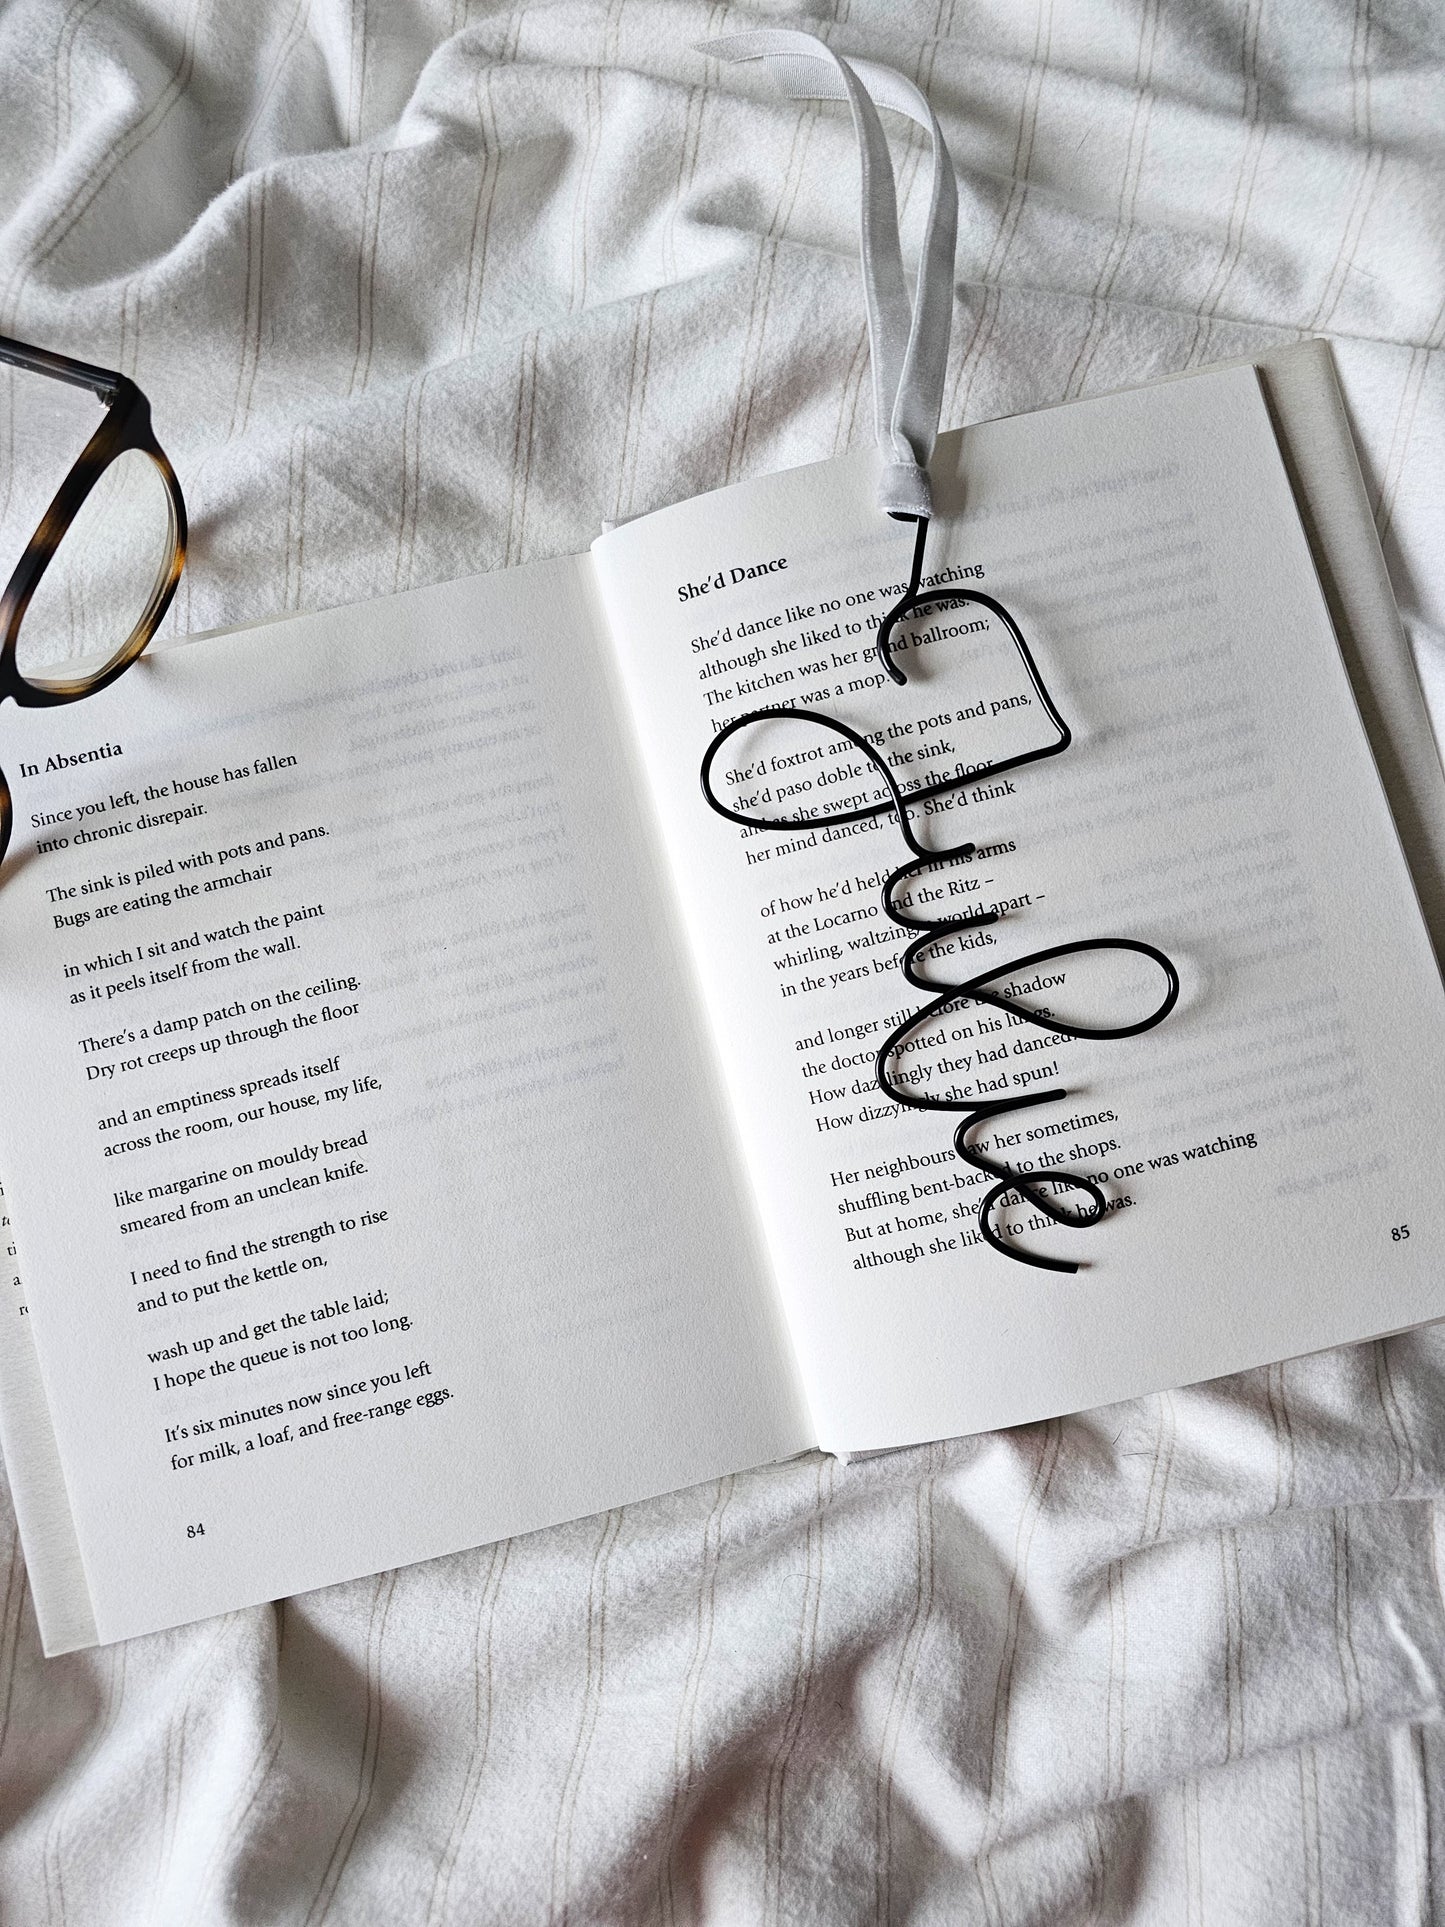 In Absentia
Since you left, the house has fallen
into chronic disrepair.
The sink is piled with pots and pans.
Bugs are eating the armchair
in which I sit and watch the paint
as it peels itself from the wall.
There's a damp patch on the ceiling.
Dry rot creeps up through the floor
and an emptiness spreads itself
across the room, our house, my life,
like margarine on mouldy bread
smeared from an unclean knife.
I need to find the strength to rise
and to put the kettle on,
wash up and get the table laid;
I hope the queue is not too long.
It's six minutes now since you left
for milk, a loaf, and free-range eggs.
84
She'd Dance
She'd dance like no one was watching
although she liked to think he was.
The kitchen was her grand ballroom;
her partner was a mop.
She'd foxtrot among the pots and pans,
she'd paso doble to the sink,
and as she swept across the floor
her mind danced, too. She'd think
of how he'd held her in his arms
at the Locarno and the Ritz –
whirling, waltzing, a world apart –
in the years before the kids,
and longer still before the shadow
the doctor spotted on his lungs.
How dazzlingly they had danced!
How dizzyingly she had spun!
Her neighbours saw her sometimes,
shuffling bent-backed to the shops.
But at home, she'd dance like no one was watching
although she liked to think he was.
85
Julie